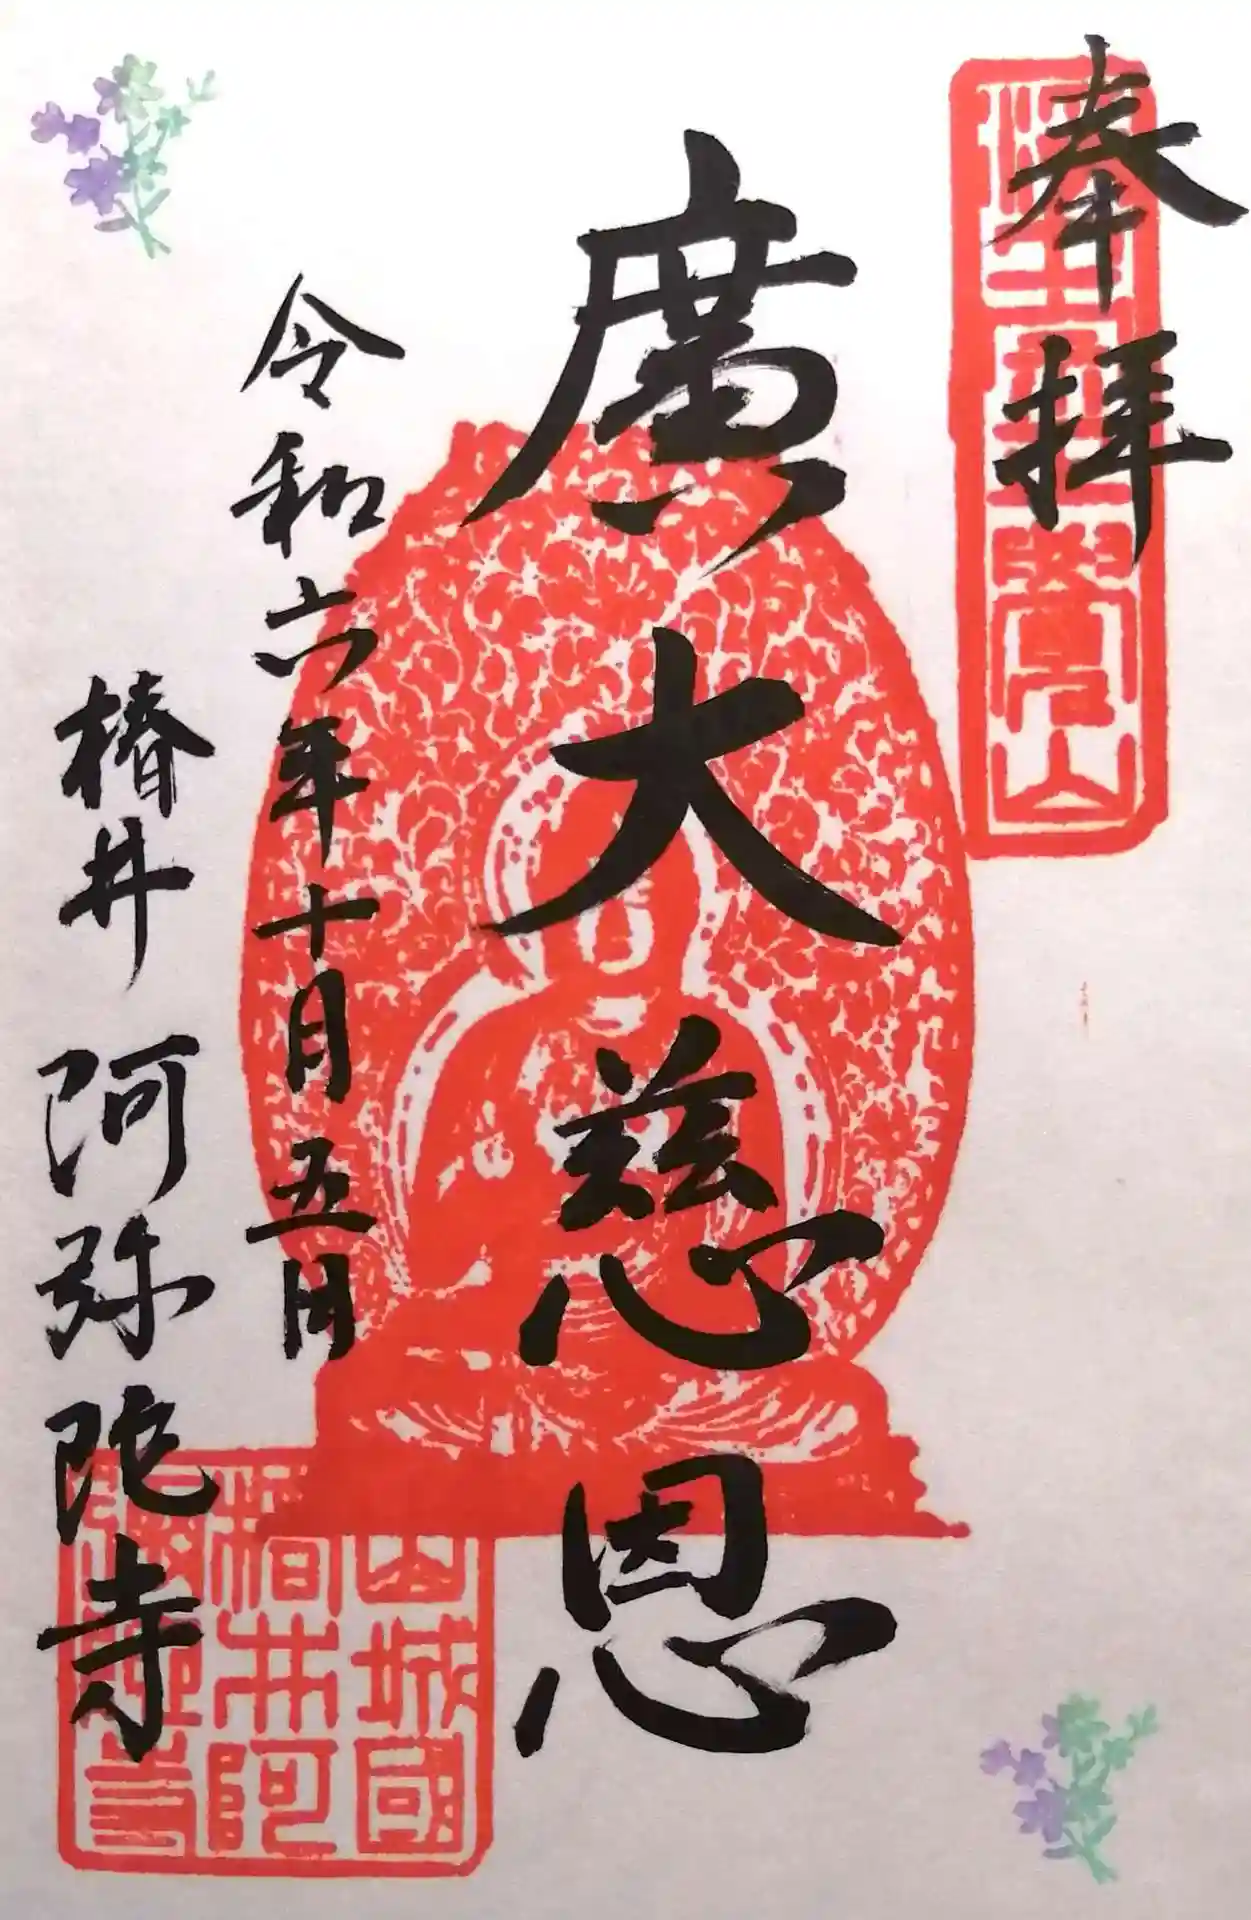 奉拝
廣大慈恩
令和六年十月五日
椿井 阿弥陀寺
山城國
椿井阿
彌陀寺